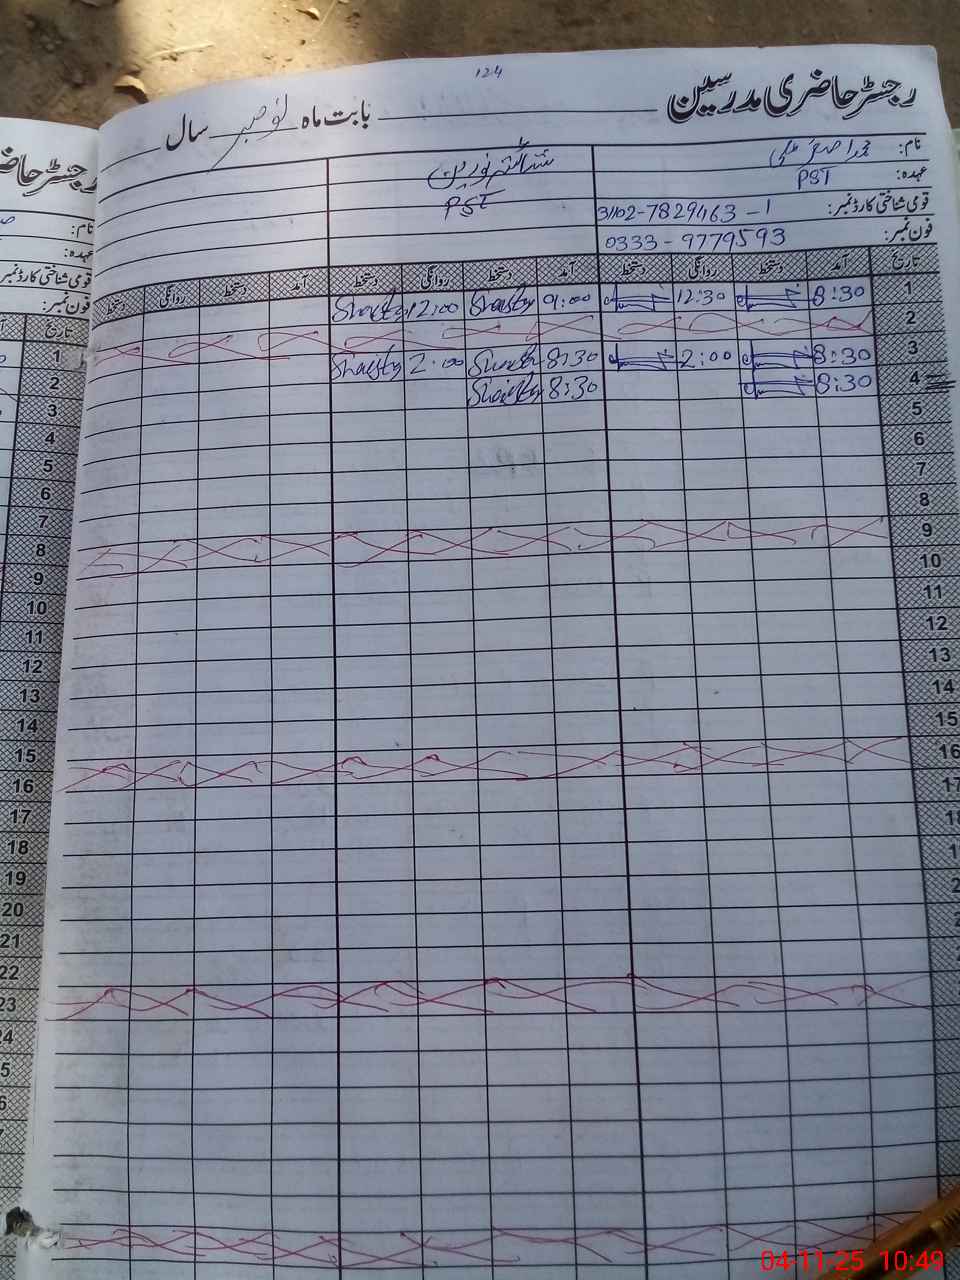 124
رجسٹر حاضری مدرسین بابت ماہ نومبر سال
نام: محمد اصغر علی شائستہ نورین
عہدہ: PST PST
قومی شناختی کارڈ نمبر: 31102-7829463-1
فون نمبر: 0333-9779593
تاریخ آمد دستخط روانگی دستخط آمد دستخط روانگی دستخط آمد دستخط روانگی دستخط
1 8:30 12:30 9:00 Shaista 12:00 Shaista
2
3 8:30 2:00 8:30 Shaista 2:00 Shaista
4 8:30 8:30 Shaista
5
6
7
8
9
10
11
12
13
14
15
16
17
رجسٹر حا
نام:
عہدہ:
قومی شناختی کارڈ نمبر
فون نمبر:
تاریخ
1
2
3
4
5
6
7
8
9
10
11
12
13
14
15
16
17
18
19
20
21
22
23
24
04-11-25 10:49